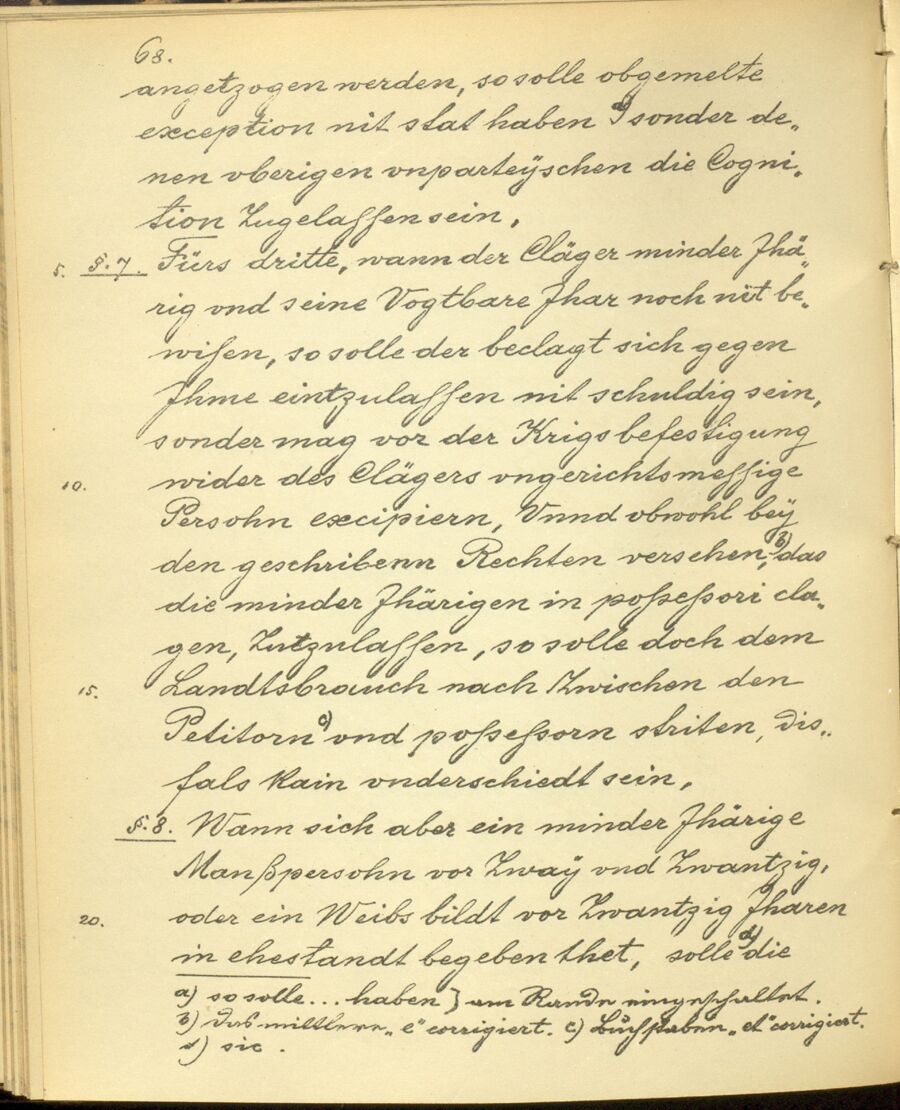 68.
angetzogen werden, so solle obgemelte
exception nit stat haben a) sonder de„
nen vberigen vnparteÿschen die Cogni„
tion Zugelassen sein,
5. §. 7. Fürs dritte, wann der Cläger minder Jhä„
rig vnd seine Vogtbare Jhar noch nit be„
wisen, so solle der beclagt sich gegen
Jhme eintzulassen nit schuldig sein,
sonder mag vor der Krigsbefestigung
10. wider des Clägers vngerichtsmessige
Persohn excipiern, Vnnd obwohl beÿ
den geschribenn Rechten versehen, b) das
die minder Jhärigen in possessori cla„
gen, Zutzulassen, so solle doch dem
15. Landtsbrauch nach Zwischen den
Petitorn c) vnd possessorn striten, dis„
fals kain vnderschiedt sein,
§. 8. Wann sich aber ein minder Jhärige
Manßpersohn vor Zwaÿ vnd Zwantzig,
20. oder ein Weibsbildt vor Zwantzig Jharen
in ehestandt begeben thet, solle d) die
a) so solle... haben] am Rande eingeschaltet.
b) das mittlere „e" corrigiert. c) Buchstaben „et" corrigiert.
d) sic.